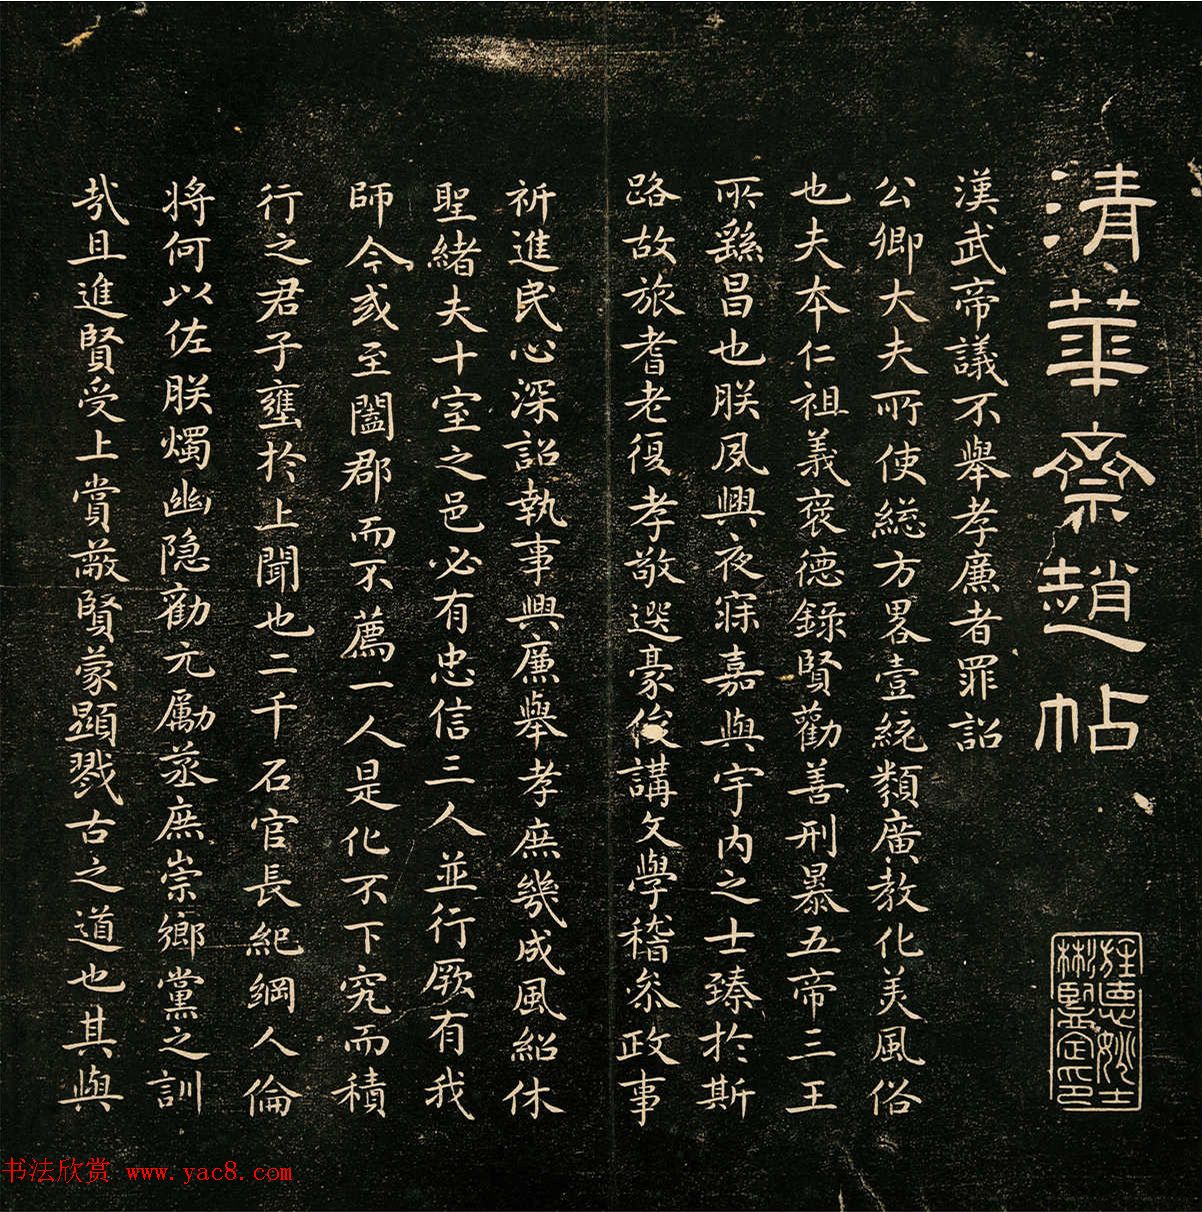 清華齋趙帖
漢武帝議不舉孝廉者罪詔
公卿大夫所使總方畧壹統類廣教化美風俗
也夫本仁祖義褒德錄賢勸善刑暴五帝三王
所繇昌也朕夙興夜寐嘉與宇內之士臻於斯
路故旅耆老復孝敬選豪俊講文學稽叅政事
祈進民心深詔執事興廉舉孝庶幾成風紹休
聖緒夫十室之邑必有忠信三人並行厥有我
師今或至闔郡而不薦一人是化不下究而積
行之君子壅於上聞也二千石官長紀綱人倫
將何以佐朕燭幽隐勸元勵蒸庶崇鄉黨之訓
哉且進賢受上賞蔽賢蒙顯戮古之道也其與
书法欣赏 www.yac8.com